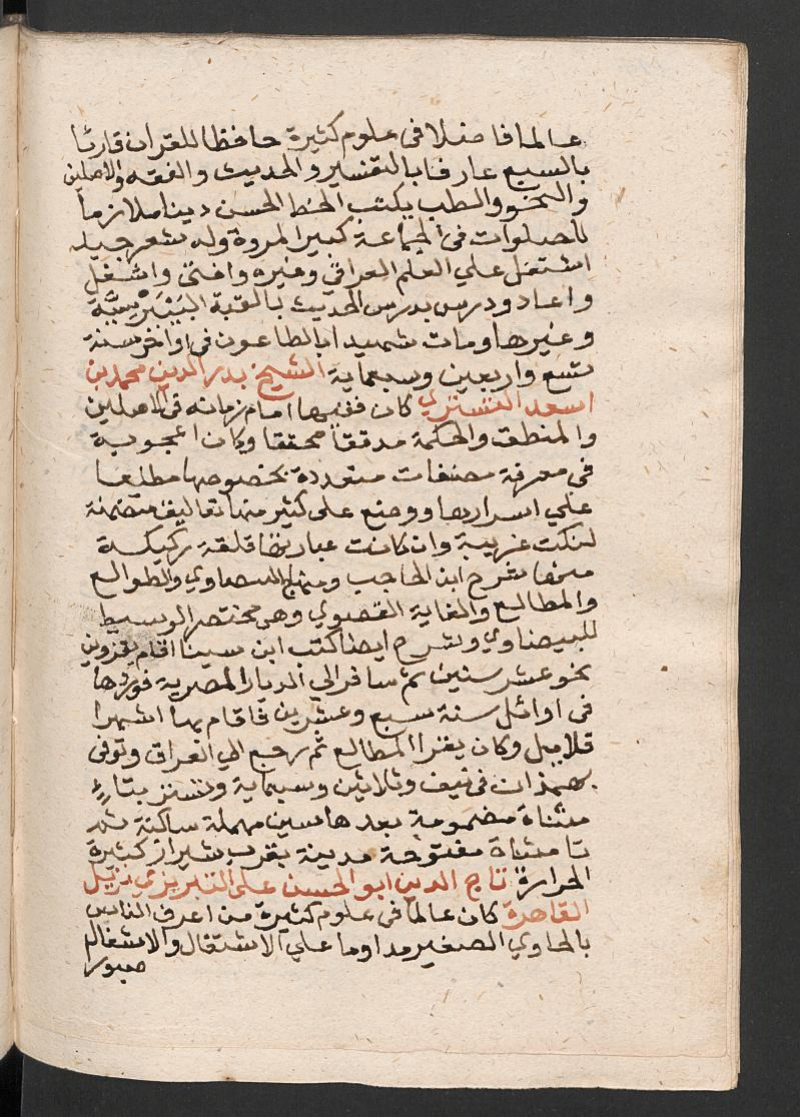 عالما فاضلا في علوم كثيرة حافظا للقران قارئا
بالسبع عارفا بالتفسير والحديث والفقه والاصلين
والنحو والطب يكتب الخط الحسن دينا ملازما
للصلوات في الجماعة كبير المروة وله شعر جيد
اشتغل علي العلم العراقي وغيره وافتى واشغل
واعاد ودرس بدرس الحديث بالقبة البَيْبَرْسِيَّة
وغيرها ومات شهيدا بالطاعون في اواخر سنة
تسع واربعين وسبعماية الشيخ بدر الدين محمد بن
اسعد التستري كان فقيها امام زمانه في الاصلين
والمنطق والحكمة مدققا محققا وكان اعجوبة
في معرفة مصنفات متعددة بخصوصها مطلعا
علي اسرارها ووضع على كثير منها تعاليق متضمنة
لنكت غريبة وان كانت عبارتها قلقة ركيكة
منها شرح ابن الحاجب ومنهاج البيضاوي والطوالع
والمطالع والغاية القصوي وهي مختصر الوسيط
للبيضاوي وشرح ايضا كتب ابن سينا اقام بقزوين
نحو عشر سنين ثم سافر الي الديار المصرية فوردها
في اوائل سنة سبع وعشرين فاقام بها اشهرا
قلايل وكان يقرا المطالع ثم رجع الي العراق وتوفى
بهمذان في نيف وثلاثين وسبعماية وتستر بتاء
مثناة مضمومة بعدها سين مهملة ساكنة ثم
تا مثناة مفتوحة مدينة بقرب شيراز كثيرة
الحرارة تاج الدين ابو الحسن على التبريزي نزيل
القاهرة كان عالما في علوم كثيرة من اعرف الناس
بالحاوي الصغير مداوما علي الاشتغال والاشغال
صبور